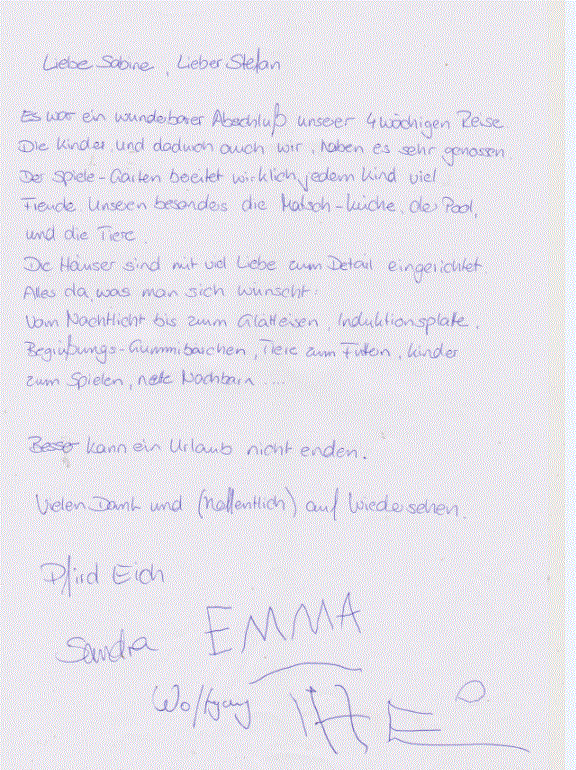 Liebe Sabine, Lieber Stefan
Es war ein wunderbarer Abschluß unserer 4 wöchigen Reise
Die Kinder, und dadurch auch wir, haben es sehr genossen
Der Spiele-Garten bereitet wirklich jedem Kind viel
Freude Unseren besonders die Matsch-Küche, der Pool,
und die Tiere.
Die Häuser sind mit viel Liebe zum Detail eingerichtet
Alles da, was man sich wünscht.
Vom Nachtlicht bis zum Glätteisen, Induktionsplatte,
Begrüßungs-Gummibärchen, Tiere zum Füttern, Kinder
zum Spielen, nette Nachbarn ....
Besser kann ein Urlaub nicht enden.
Vielen Dank und (hoffentlich) auf Wiedersehen.
Pfird Eich
Sandra EMMA
Wolfgang